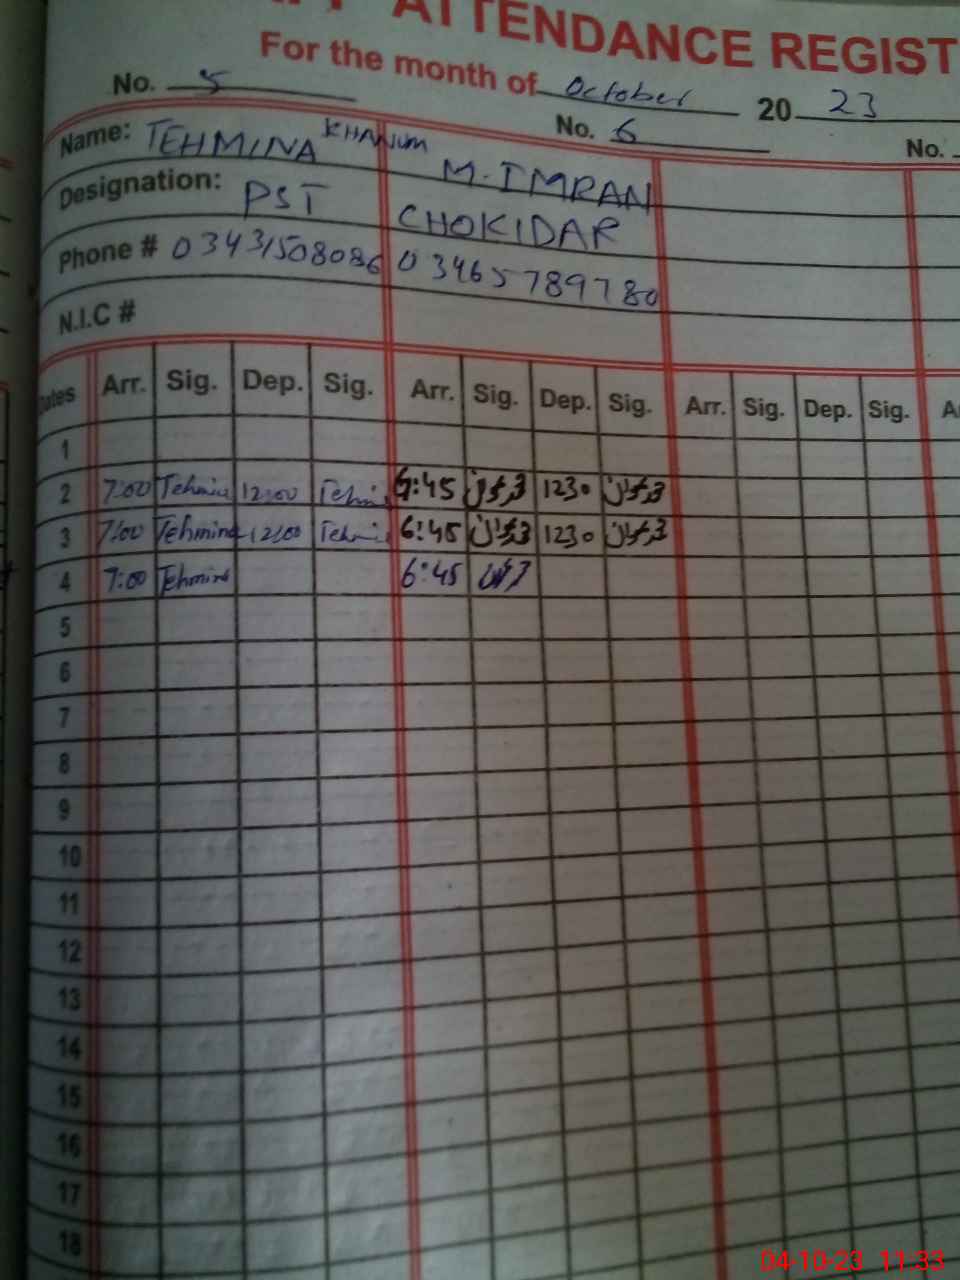 ATTENDANCE REGIST
For the month of October 2023
No. 5 No. 6 No.
Name: TEHMINA KHANUM M. IMRAN
Designation: PST CHOKIDAR
Phone # 03431508086 03465789780
N.I.C #
Dates Arr. Sig. Dep. Sig. Arr. Sig. Dep. Sig. Arr. Sig. Dep. Sig. A
1
2 7:00 Tehmina 12:00 Tehmi 6:45 1230
3 7:00 Tehmina 12:00 Tehmi 6:45 1230
4 7:00 Tehmina 6:45
5
6
7
8
9
10
11
12
13
14
15
16
17
18
04-10-23 11:33